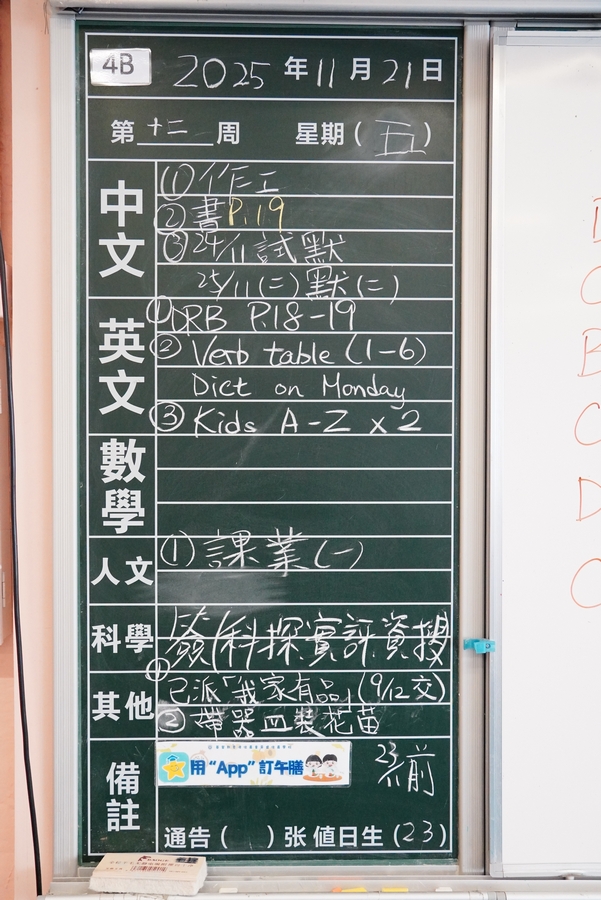 4B 2025年11月21日
第十二周 星期(五)
中文
①作工
②書P.19
③24/11試默
25/11(二)默(二)
英文
①DRB P.18-19
②Verb table (1-6)
Dict on Monday
③Kids A-Z x 2
數學
人文
①課業(一)
科學
簽(科探實評資搜
其他
①已派「我家有品」(9/12交)
②帶器皿裝花苗
備註
用“App”訂午膳
23/前
通告( )张 值日生(23)
D
C
B
C
D
C